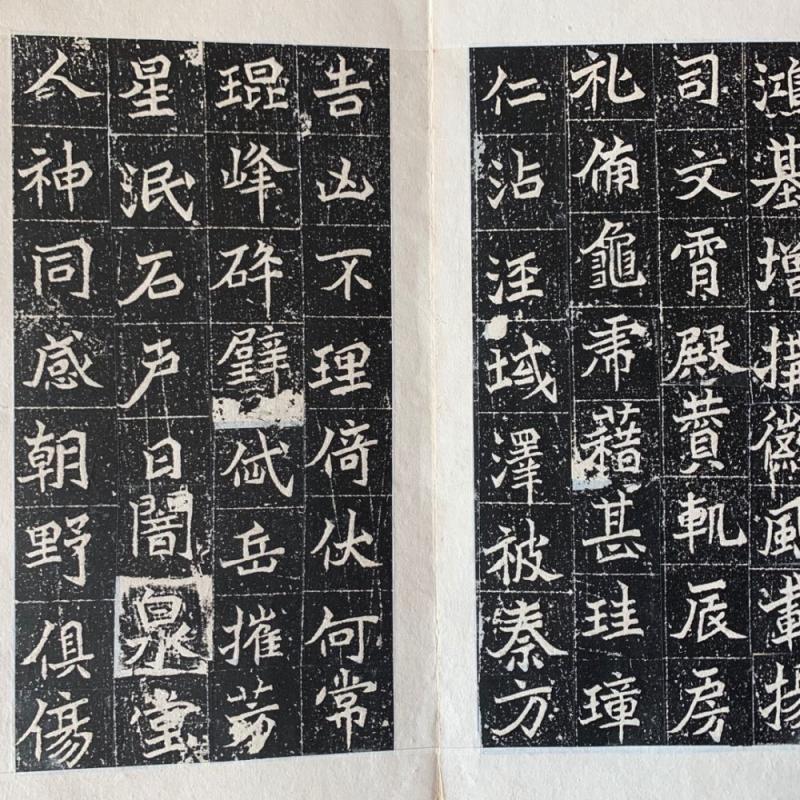 鴻基增構徽風載揚
司文霄殿贊軌辰房
礼俻龜虎藉甚珪璋
仁沾涇域澤被秦方
告凶不理倚伏何常
琨峰碎璧岱岳摧芳
星泯石戶日闇泉堂
人神同感朝野俱傷